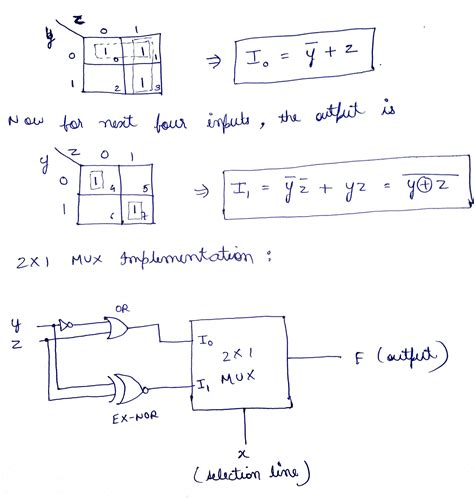 z
y 0 1
0 1 0 1 1
1 2 1 3
⇒ I₀ = y̅ + z
Now for next four inputs, the output is
y z 0 1
0 1 4 5
1 6 1 7
⇒ I₁ = y̅ z̅ + yz = \overline{y⊕z}
2X1 MUX Implementation :
OR
y
z
I₀
2X1
I₁ MUX
F (output)
EX-NOR
x
(selection line)